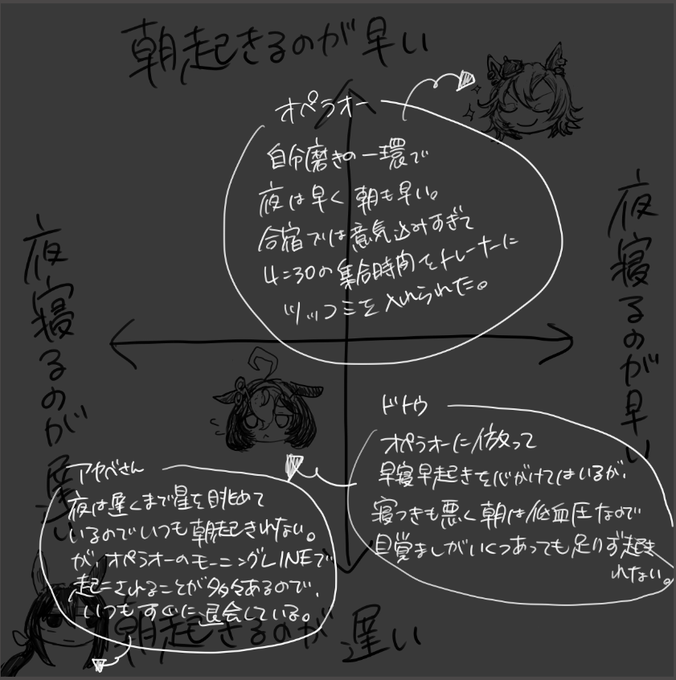 朝起きるのが早い
オペラオー
自分磨きの一環で
夜は早く朝も早い。
合宿では意気込みすぎて
4:30の集合時間をトレーナーに
ツッコミを入れられた。
夜寝るのが早い
夜寝るのが遅い
ドトウ
オペラオーに倣って
早寝早起きを心がけてはいるが、
寝つきも悪く朝は低血圧なので
目覚ましがいくつあっても足りず起き
れない。
アヤベさん
夜は遅くまで星を眺めて
いるのでいつも朝起きれない。
が、オペラオーのモーニングLINEで
起こされることが多々あるので、
いつもすぐに退会している。
朝起きるのが遅い